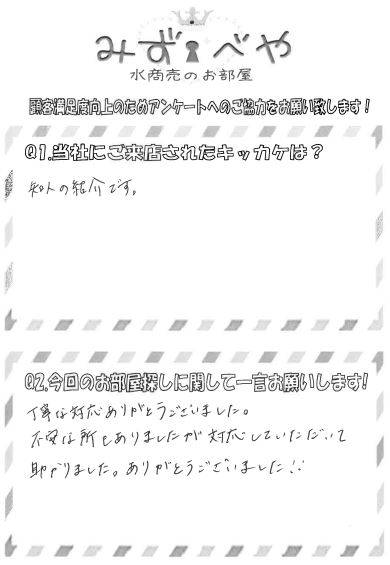 みず べや
水商売のお部屋
顧客満足度向上のためアンケートへのご協力をお願い致します！
Q1.当社にご来店されたキッカケは？
知人の紹介です。
Q2.今回のお部屋探しに関して一言お願いします!
丁寧な対応ありがとうございました。
不安な所もありましたが対応していただいて
助かりました。ありがとうございました!!